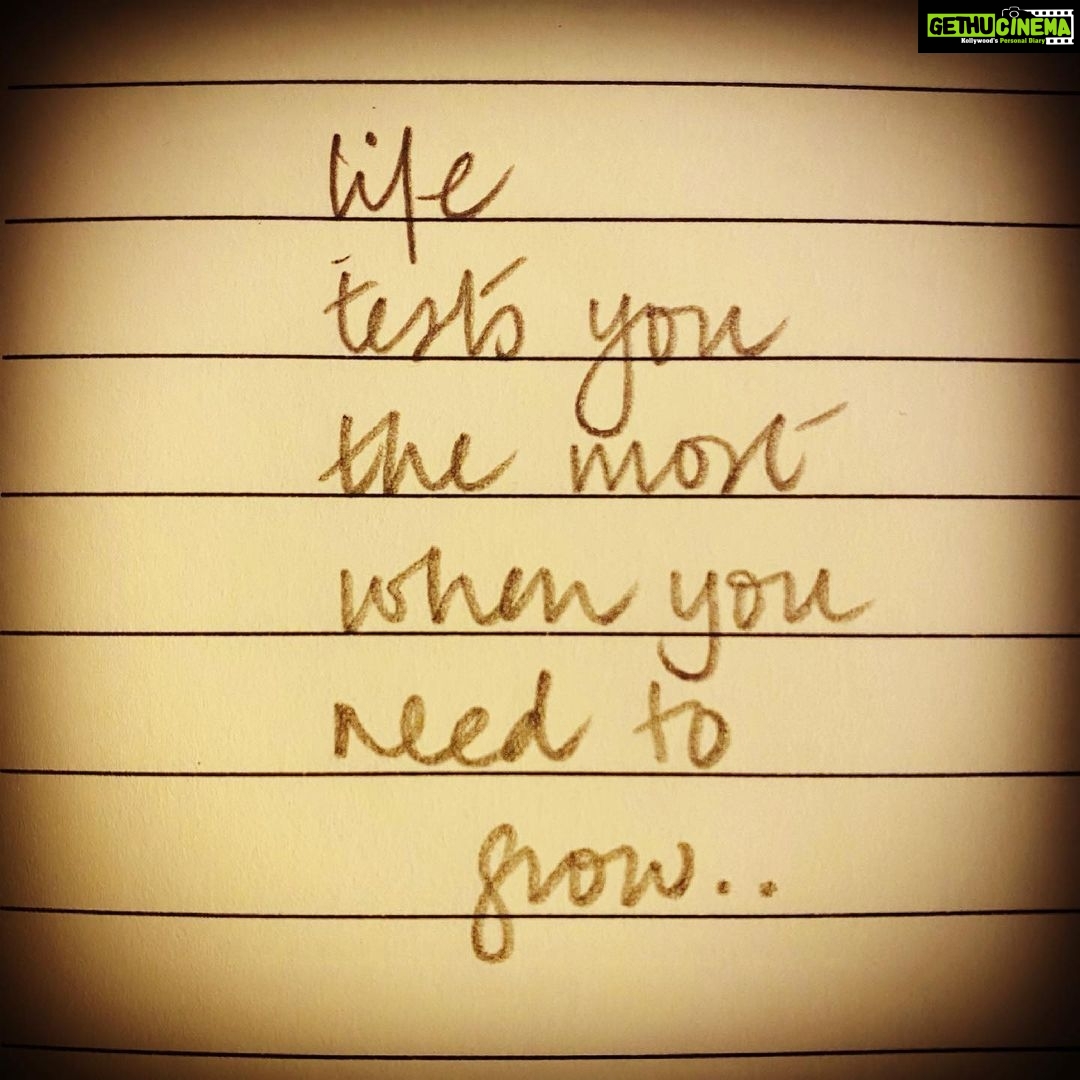 GETHU CINEMA
Kollywood's Personal Diary
life
tests you
the most
when you
need to
grow..